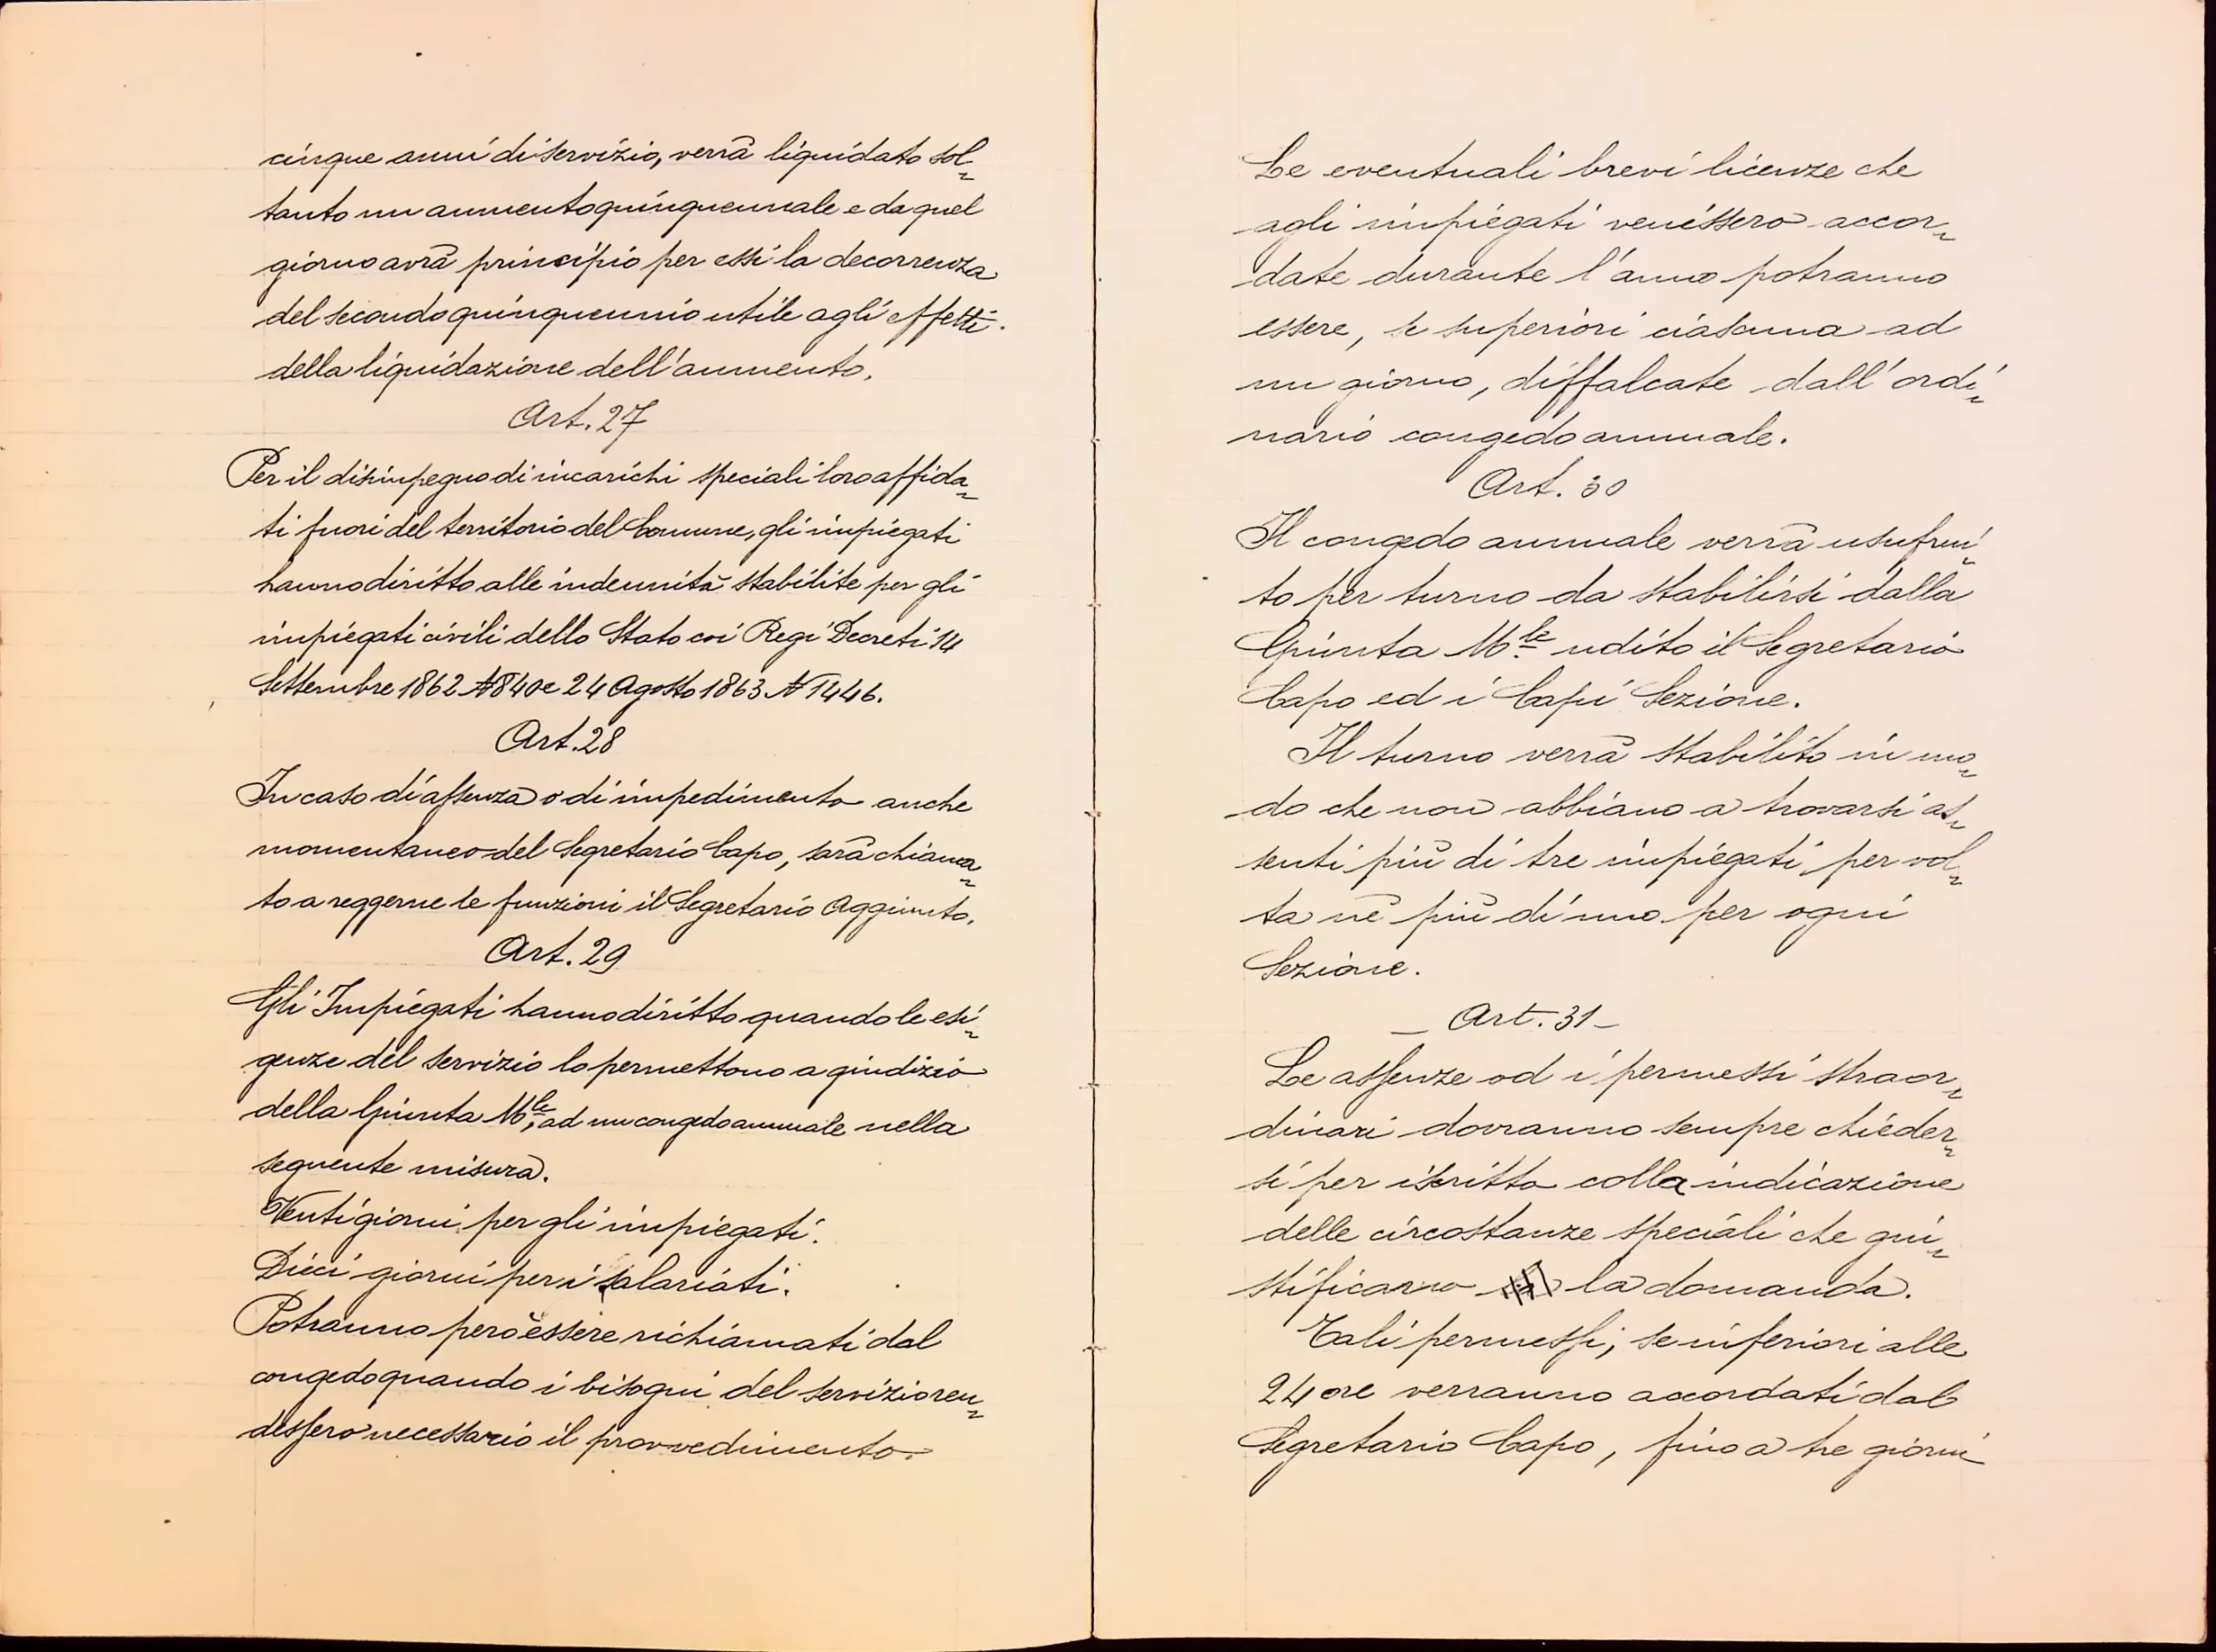 cinque anni di servizio, verrà liquidato sol„
tanto un aumento quinquennale e da quel
giorno avrà principio per essi la decorrenza
del secondo quinquennio utile agli effetti
della liquidazione dell'aumento.
Art. 27
Per il disimpegno di incarichi speciali loro affida„
ti fuori del territorio del Comune, gli impiegati
hanno diritto alle indennità stabilite per gli
impiegati civili dello Stato coi Regi Decreti 14
Settembre 1862 N 840 e 24 Agosto 1863 N 1446.
Art. 28
In caso di assenza o di impedimento anche
momentaneo del Segretario Capo, sarà chiama„
to a reggerne le funzioni il Segretario Aggiunto.
Art. 29
Gli Impiegati hanno diritto quando le esi„
genze del servizio lo permettono a giudizio
della Giunta Mle, ad un congedo annuale nella
seguente misura.
Venti giorni per gli impiegati.
Dieci giorni per i salariati.
Potranno però essere richiamati dal
congedo quando i bisogni del servizio ren„
dessero necessario il provvedimento.
Le eventuali brevi licenze che
agli impiegati venissero accor„
date durante l'anno potranno
essere, se superiori ciascuna ad
un giorno, diffalcate dall'ordi„
nario congedo annuale.
Art. 30
Il congedo annuale verrà usufrui„
to per turno da stabilirsi dalla
Giunta Mle udito il Segretario
Capo ed i Capi Sezione.
Il turno verrà stabilito in mo„
do che non abbiano a trovarsi as„
senti più di tre impiegati per vol„
ta nè più di uno per ogni
Sezione.
_ Art. 31 _
Le assenze od i permessi straor„
dinari dovranno sempre chieder„
si per iscritto colla indicazione
delle circostanze speciali che giu„
stificano la domanda.
Tali permessi, se inferiori alle
24 ore verranno accordati dal
Segretario Capo, fino a tre giorni